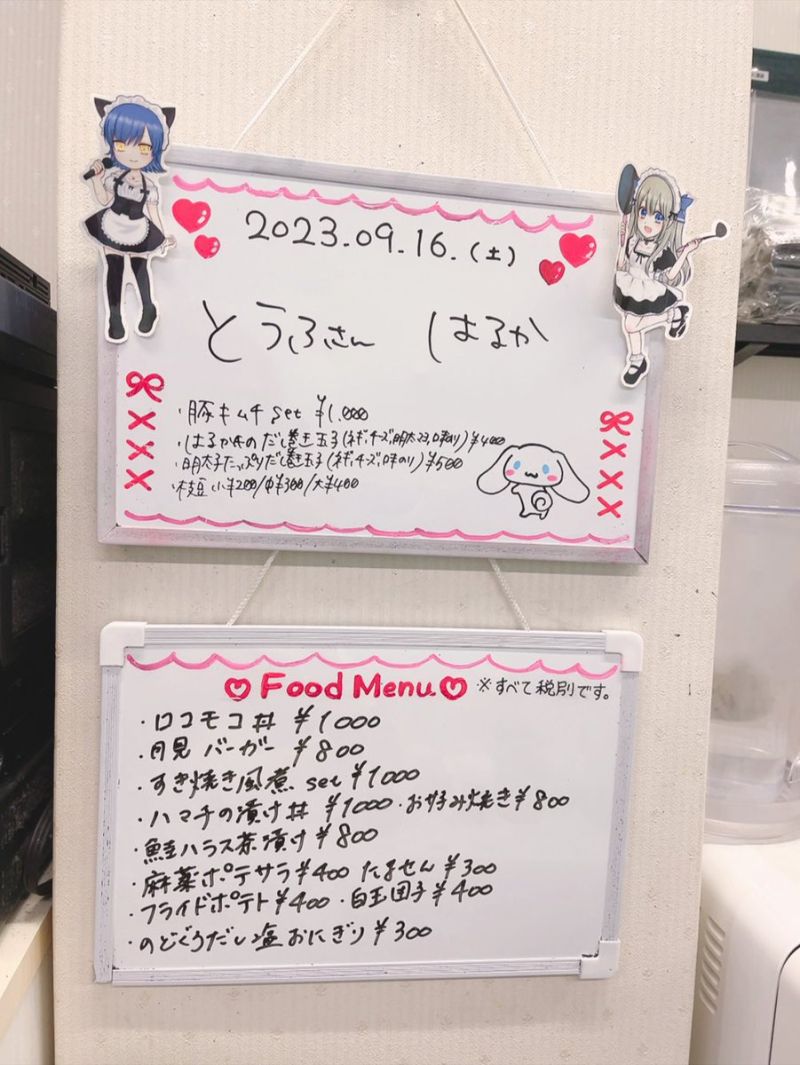 2023.09.16.(土)
とうふさん はるか
・豚キムチset ¥1,000
・はるか作のだし巻き玉子(ネギ,チーズ,明太マヨ,味のり)¥400
・明太子たっぷりだし巻玉子(ネギ,チーズ,味のり)¥500
・枝豆 小¥200/中¥300/大¥400
Food Menu ※すべて税別です。
・ロコモコ丼 ¥1000
・月見バーガー ¥800
・すき焼き風煮set ¥1000
・ハマチの漬け丼 ¥1000 ・お好み焼き¥800
・鮭ハラス茶漬け ¥800
・麻薬ポテサラ¥400 たません¥300
・フライドポテト¥400 ・白玉団子¥400
・のどぐろだし塩おにぎり¥300